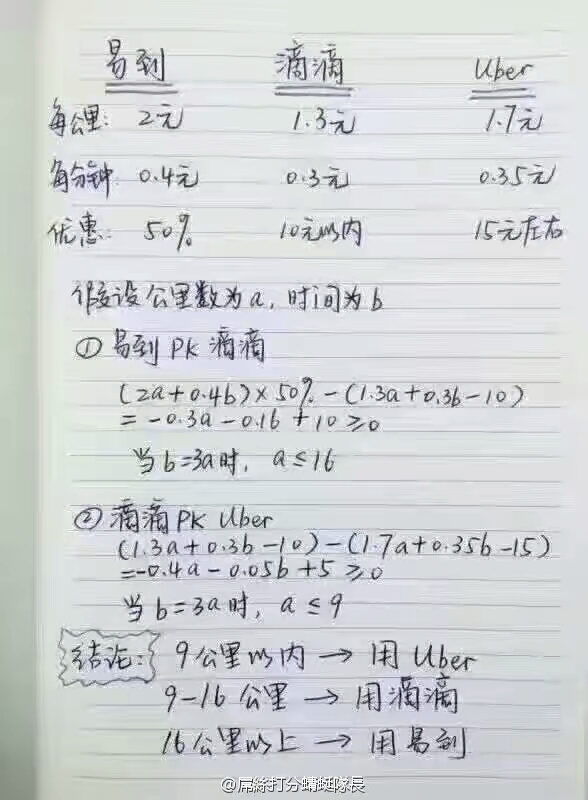 易到 滴滴 Uber
每公里: 2元 1.3元 1.7元
每分钟: 0.4元 0.3元 0.35元
优惠: 50% 10元以内 15元左右
假设公里数为a,时间为b
① 易到 PK 滴滴
(2a+0.4b)×50%-(1.3a+0.3b-10)
=-0.3a-0.1b+10≥0
当b=3a时, a≤16
② 滴滴 PK Uber
(1.3a+0.3b-10)-(1.7a+0.35b-15)
=-0.4a-0.05b+5≥0
当b=3a时, a≤9
结论: 9公里以内→用Uber
9-16公里→用滴滴
16公里以上→用易到
@屌絲打分蜻蜓隊長